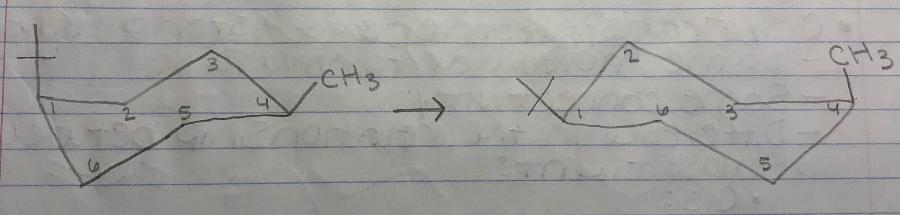 1 2 3 4 5 6 CH3
1 2 3 4 5 6 CH3